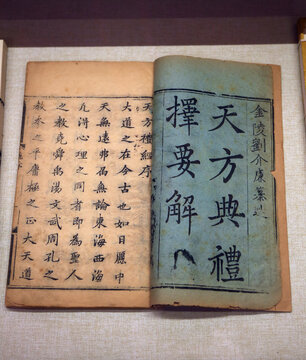 金陵劉介廉纂述
天方典禮
擇要解
天方禮經序
大道之在今古也如日縣中
天無遠弗屆無論東海西海
凡得心理之同者即為聖人
之教堯舜禹湯文武周孔之
教之平庸極之正大天道